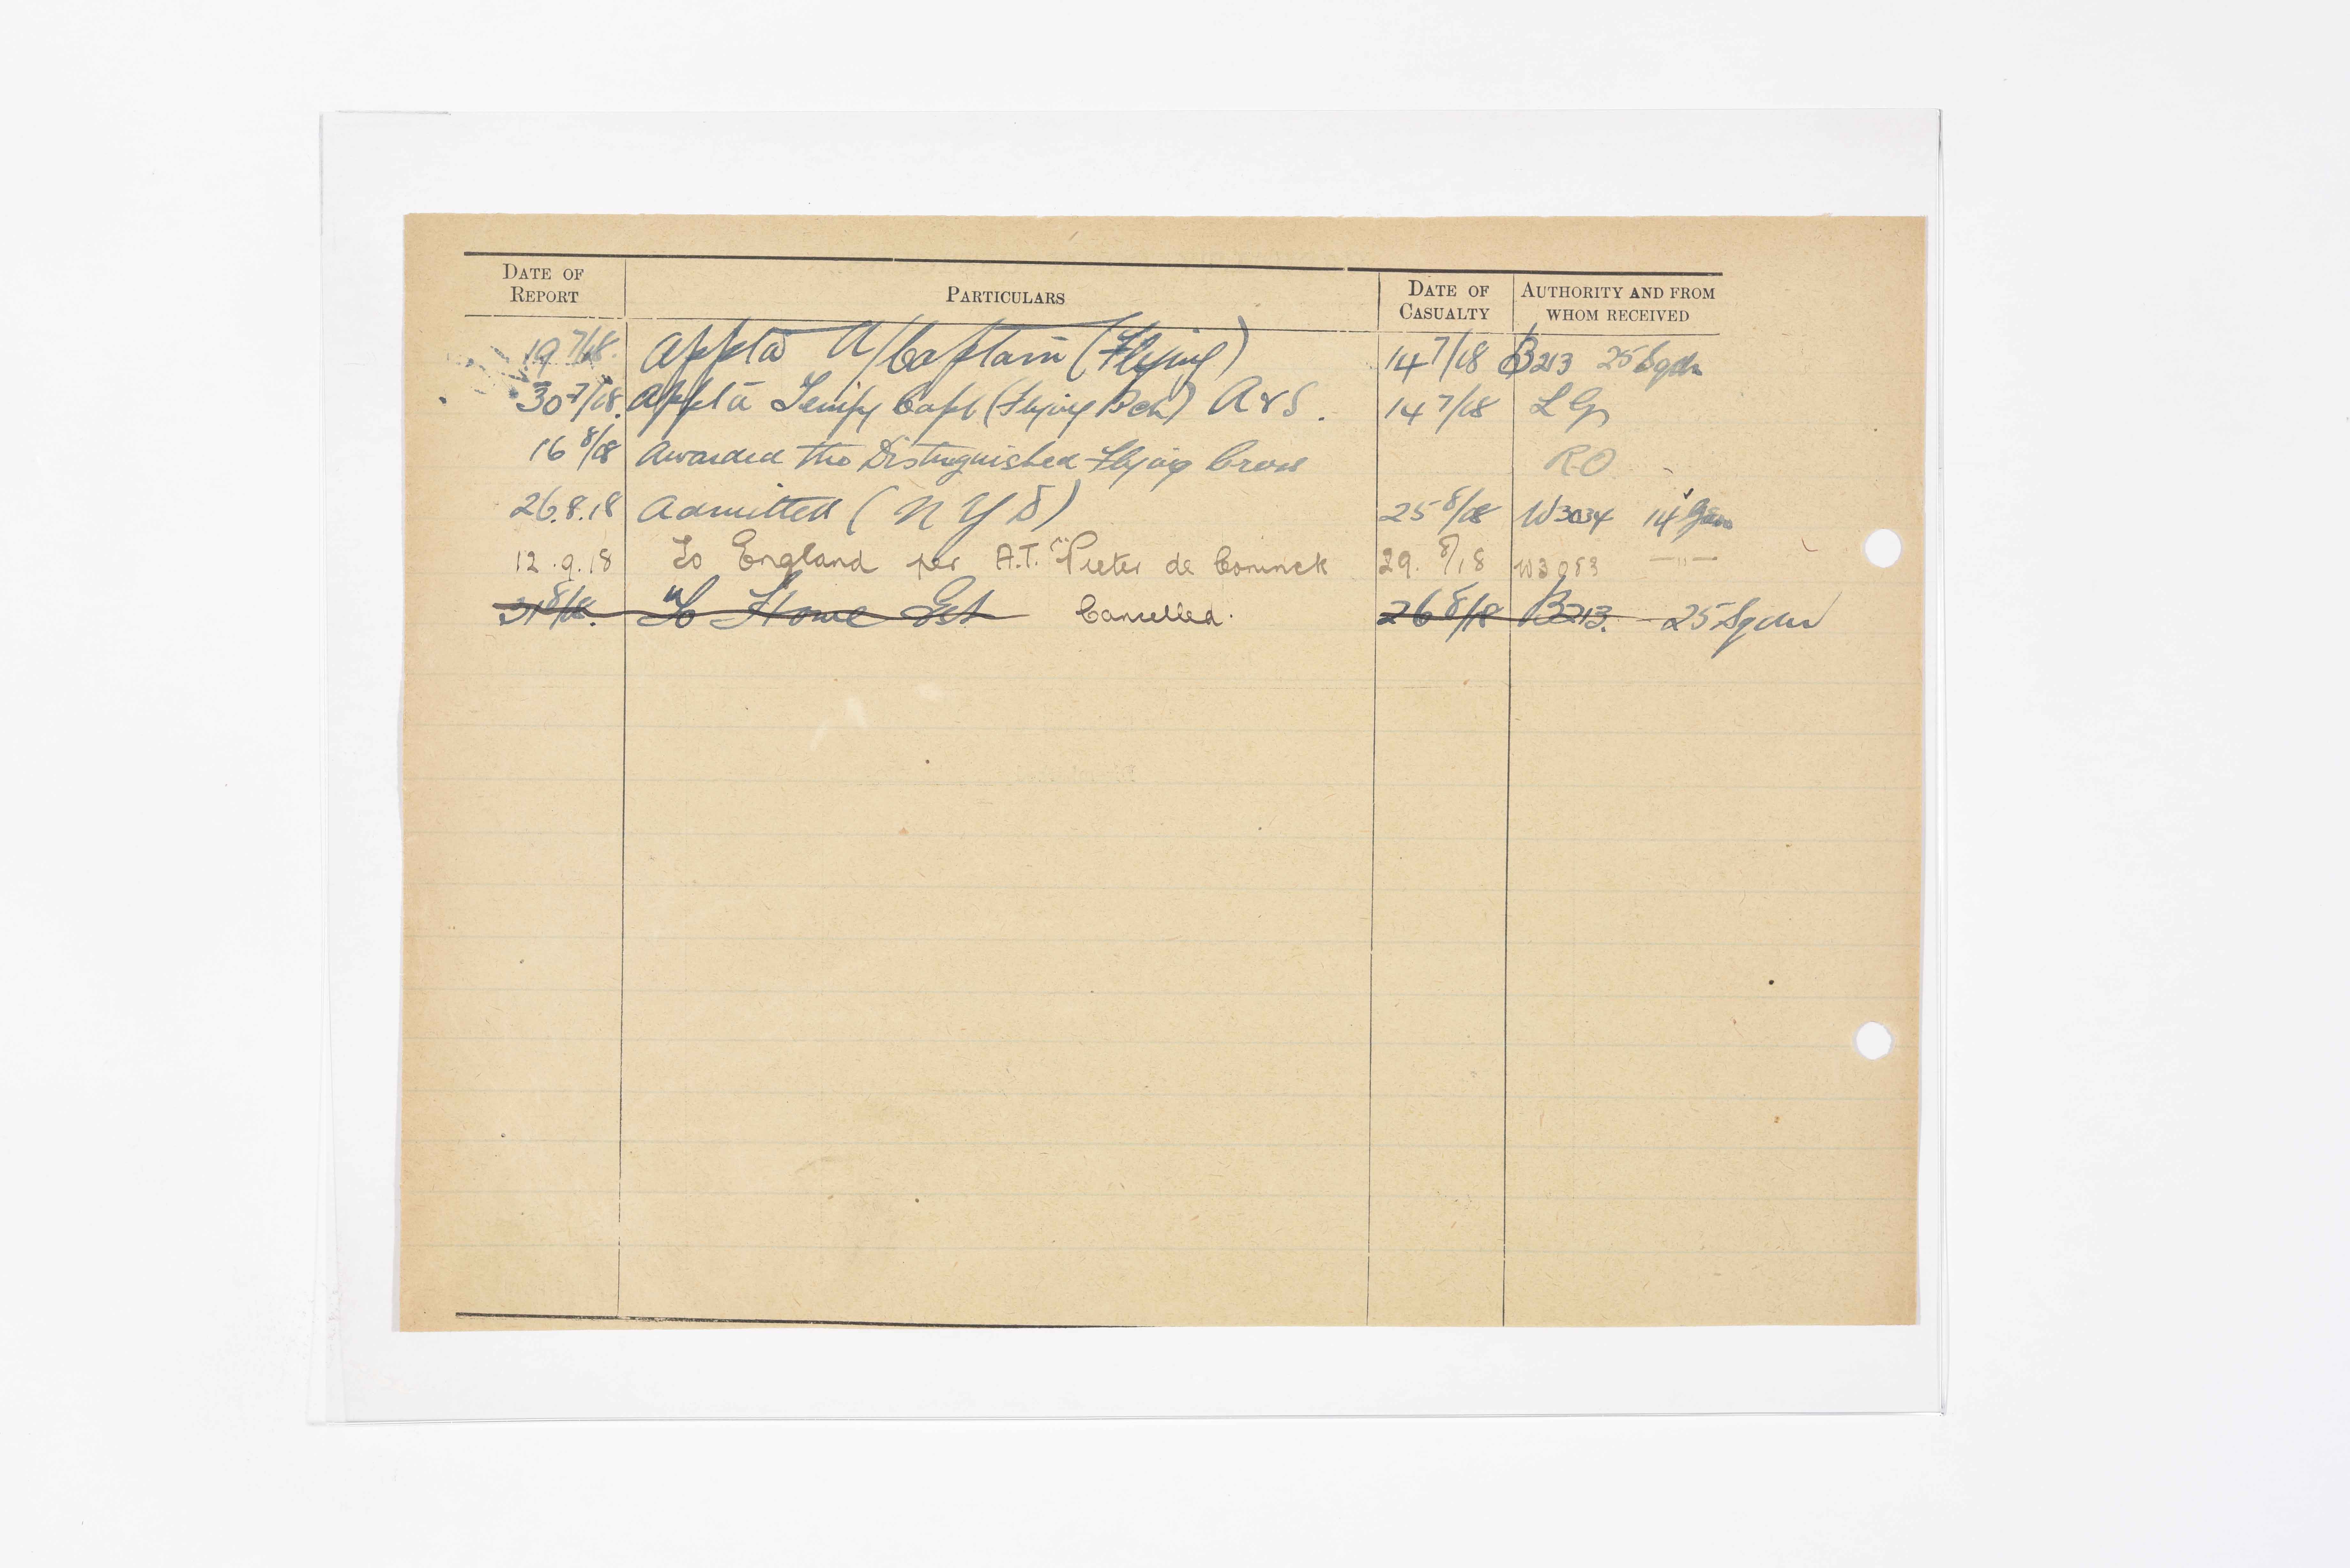 DATE OF REPORT PARTICULARS DATE OF CASUALTY AUTHORITY AND FROM WHOM RECEIVED
19 7/18. Apptd A/Captain (Flying) 14 7/18 B213 25 Sqdn
30 7/18. Apptd Tempy Capt (Flying Bch) A & S. 14 7/18 L G
16 8/18 Awarded the Distinguished Flying Cross RO
26.8.18 Admitted (N Y D) 25 8/18 W3034 14 Gen
12.9.18 To England per A.T. "Pieter de Coninck" 29. 8/18 W3053 —"—
31 8/18. To Home Est Cancelled. 26 8/18 B213. 25 Sqdn